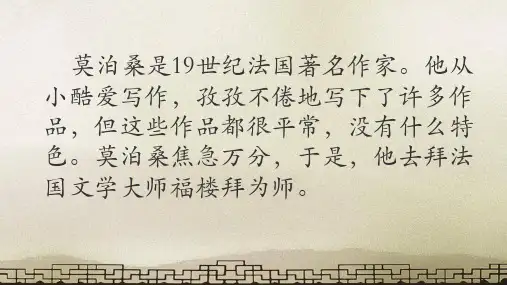 莫泊桑是19世纪法国著名作家。他从
小酷爱写作，孜孜不倦地写下了许多作
品，但这些作品都很平常，没有什么特
色。莫泊桑焦急万分，于是，他去拜法
国文学大师福楼拜为师。